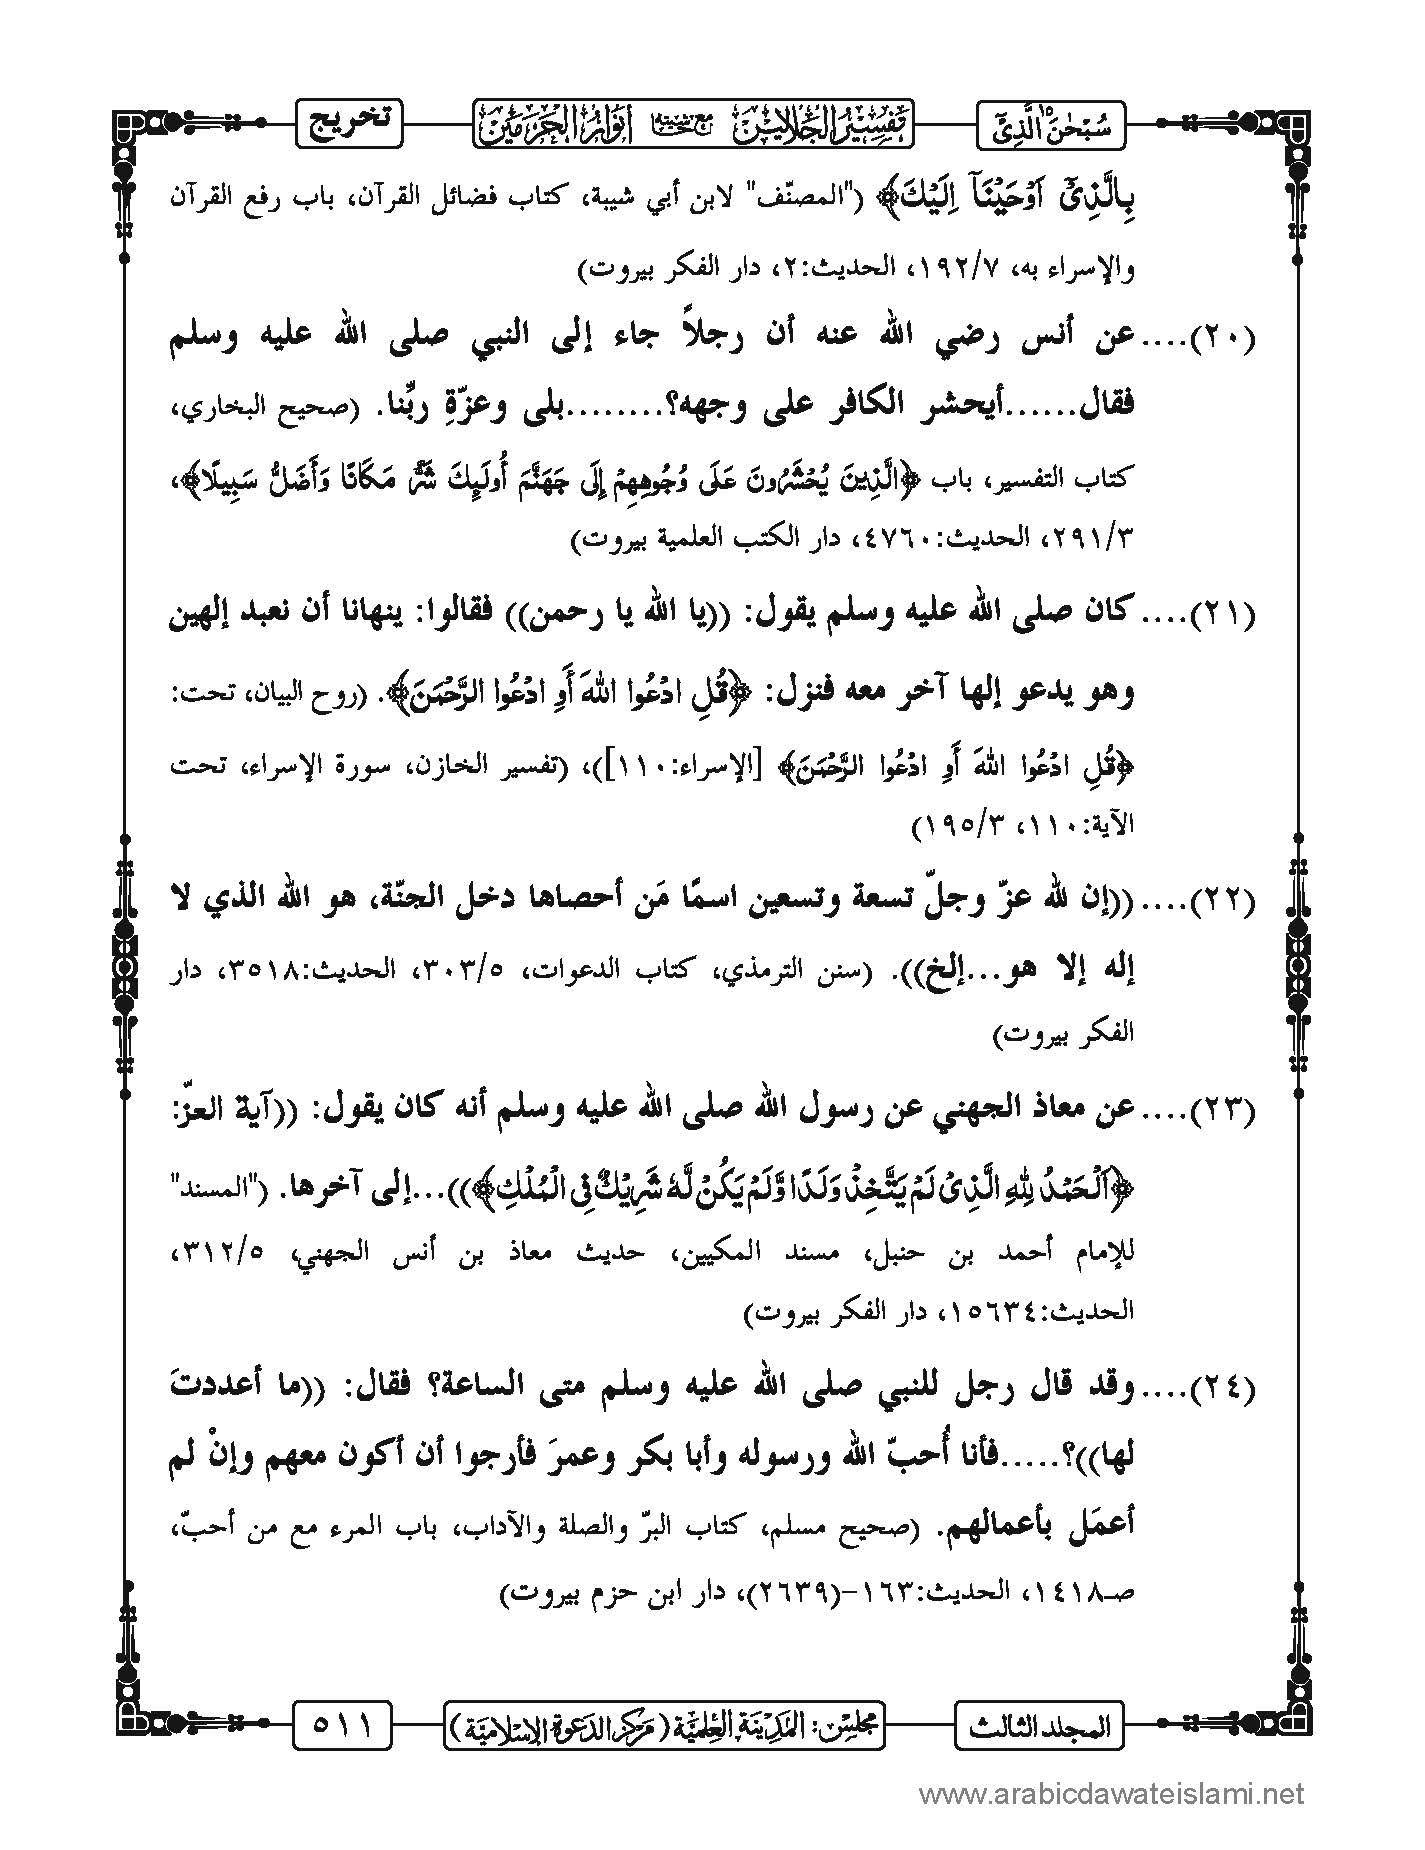 سُبْحٰنَ الَّذِیْٓ
تفسير الجلالين مع حاشية أنوار الحرمين
تخريج
بِالَّذِیْۤ اَوْحَیْنَاۤ اِلَیْكَ﴾ ("المصنّف" لابن أبي شيبة، كتاب فضائل القرآن، باب رفع القرآن
والإسراء به، ١٩٢/٧، الحديث:٢، دار الفكر بيروت)
(٢٠)....عن أنس رضي الله عنه أن رجلاً جاء إلى النبي صلى الله عليه وسلم
فقال......أيحشر الكافر على وجهه؟........بلى وعزّةِ ربِّنا. (صحيح البخاري،
كتاب التفسير، باب ﴿الَّذِينَ يُحْشَرُونَ عَلَى وُجُوهِهِمْ إِلَى جَهَنَّمَ أُولَئِكَ شَرٌّ مَكَانًا وَأَضَلُّ سَبِيلًا﴾،
٢٩١/٣، الحديث:٤٧٦٠، دار الكتب العلمية بيروت)
(٢١)....كان صلى الله عليه وسلم يقول: ((يا الله يا رحمن)) فقالوا: ينهانا أن نعبد إلهين
وهو يدعو إلها آخر معه فنزل: ﴿قُلِ ادْعُوا اللهَ أَوِ ادْعُوا الرَّحْمَنَ﴾. (روح البيان، تحت:
﴿قُلِ ادْعُوا اللهَ أَوِ ادْعُوا الرَّحْمَنَ﴾ [الإسراء:١١٠])، (تفسير الخازن، سورة الإسراء، تحت
الآية:١١٠، ١٩٥/٣)
(٢٢)....((إن لله عزّ وجلّ تسعة وتسعين اسمًا مَن أحصاها دخل الجنّة، هو الله الذي لا
إله إلا هو...إلخ)). (سنن الترمذي، كتاب الدعوات، ٣٠٣/٥، الحديث:٣٥١٨، دار
الفكر بيروت)
(٢٣)....عن معاذ الجهني عن رسول الله صلى الله عليه وسلم أنه كان يقول: ((آية العزّ:
﴿اَلْحَمْدُ لِلّٰهِ الَّذِیْ لَمْ یَتَّخِذْ وَلَدًا وَّلَمْ یَكُنْ لَّهٗ شَرِیْكٌ فِی الْمُلْكِ﴾))...إلى آخرها. ("المسند"
للإمام أحمد بن حنبل، مسند المكيين، حديث معاذ بن أنس الجهني، ٣١٢/٥،
الحديث:١٥٦٣٤، دار الفكر بيروت)
(٢٤)....وقد قال رجل للنبي صلى الله عليه وسلم متى الساعة؟ فقال: ((ما أعددتَ
لها))؟.....فأنا أُحبّ الله ورسوله وأبا بكر وعمرَ فأرجوا أن أكون معهم وإنْ لم
أعمَل بأعمالهم. (صحيح مسلم، كتاب البرّ والصلة والآداب، باب المرء مع من أحبّ،
صـ١٤١٨، الحديث:١٦٣-(٢٦٣٩)، دار ابن حزم بيروت)
المجلد الثالث
مجلس: المدينة العلمية (مركز الدعوة الإسلامية)
٥١١
www.arabicdawateislami.net